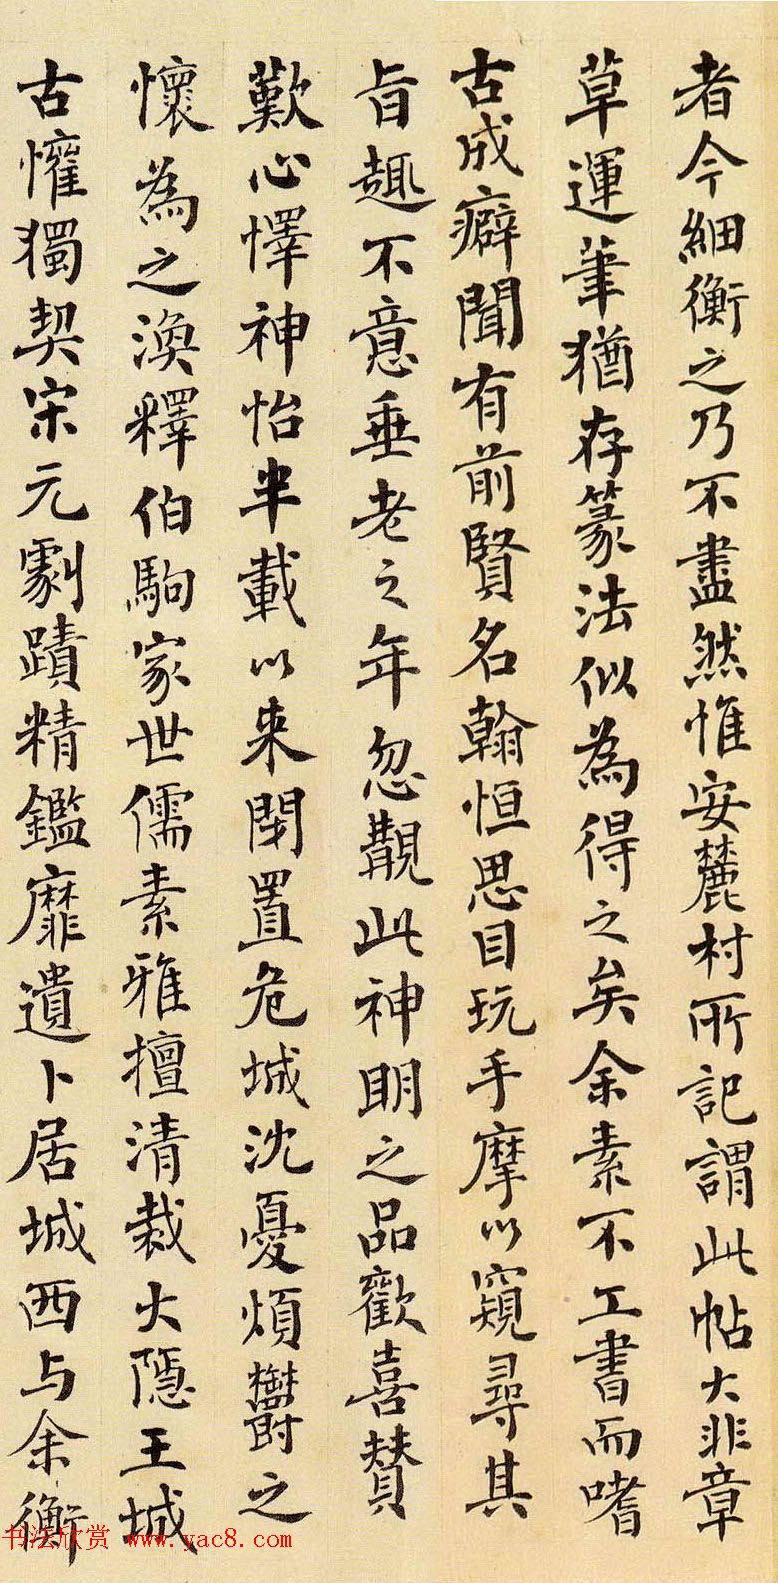 者今細衡之乃不盡然惟安麓村所記謂此帖大非章
草運筆猶存篆法似為得之矣余素不工書而嗜
古成癖聞有前賢名翰恒思目玩手摩以窺尋其
旨趣不意垂老之年忽覩此神明之品歡喜贊
歎心懌神怡半載以来閉置危城沈憂煩鬱之
懷為之渙釋伯駒家世儒素雅擅清裁大隱王城
古懽獨契宋元劇蹟精鑑靡遺卜居城西与余衡
书法欣赏 www.yac8.com